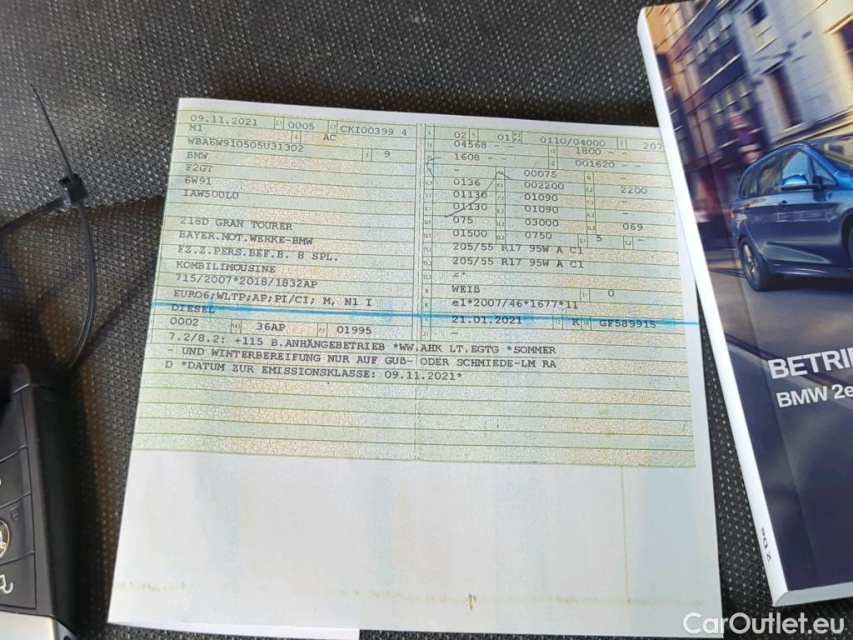 09.11.2021 0005 CKI00399 4 02 01 0110/04000 207
M1 AC 04568 - - 1800 - -
WBA6W910505U31302 9 1608 - - 001620 - -
BMW - 00075
F2GT 0136 002200 2200
6W91 01130 01090 -
IAW500L0 01130 01090 -
075 03000 069
218D GRAN TOURER 01500 0750 5 -
BAYER.MOT.WERKE-BMW 205/55 R17 95W A C1
FZ.Z.PERS.BEF.B. 8 SPL. 205/55 R17 95W A C1
KOMBILIMOUSINE
715/2007*2018/1832AP WEIß 0
EURO6;WLTP;AP;PI/CI; M, N1 I e1*2007/46*1677*11
DIESEL 21.01.2021 K GF589915
0002 36AP 01995 -
7.2/8.2: +115 B.ANHÄNGEBETRIEB *WW.AHK LT.EGTG *SOMMER
- UND WINTERBEREIFUNG NUR AUF GUß- ODER SCHMIEDE-LM RA
D *DATUM ZUR EMISSIONSKLASSE: 09.11.2021*
BETRIE
BMW 2e
CarOutlet.eu